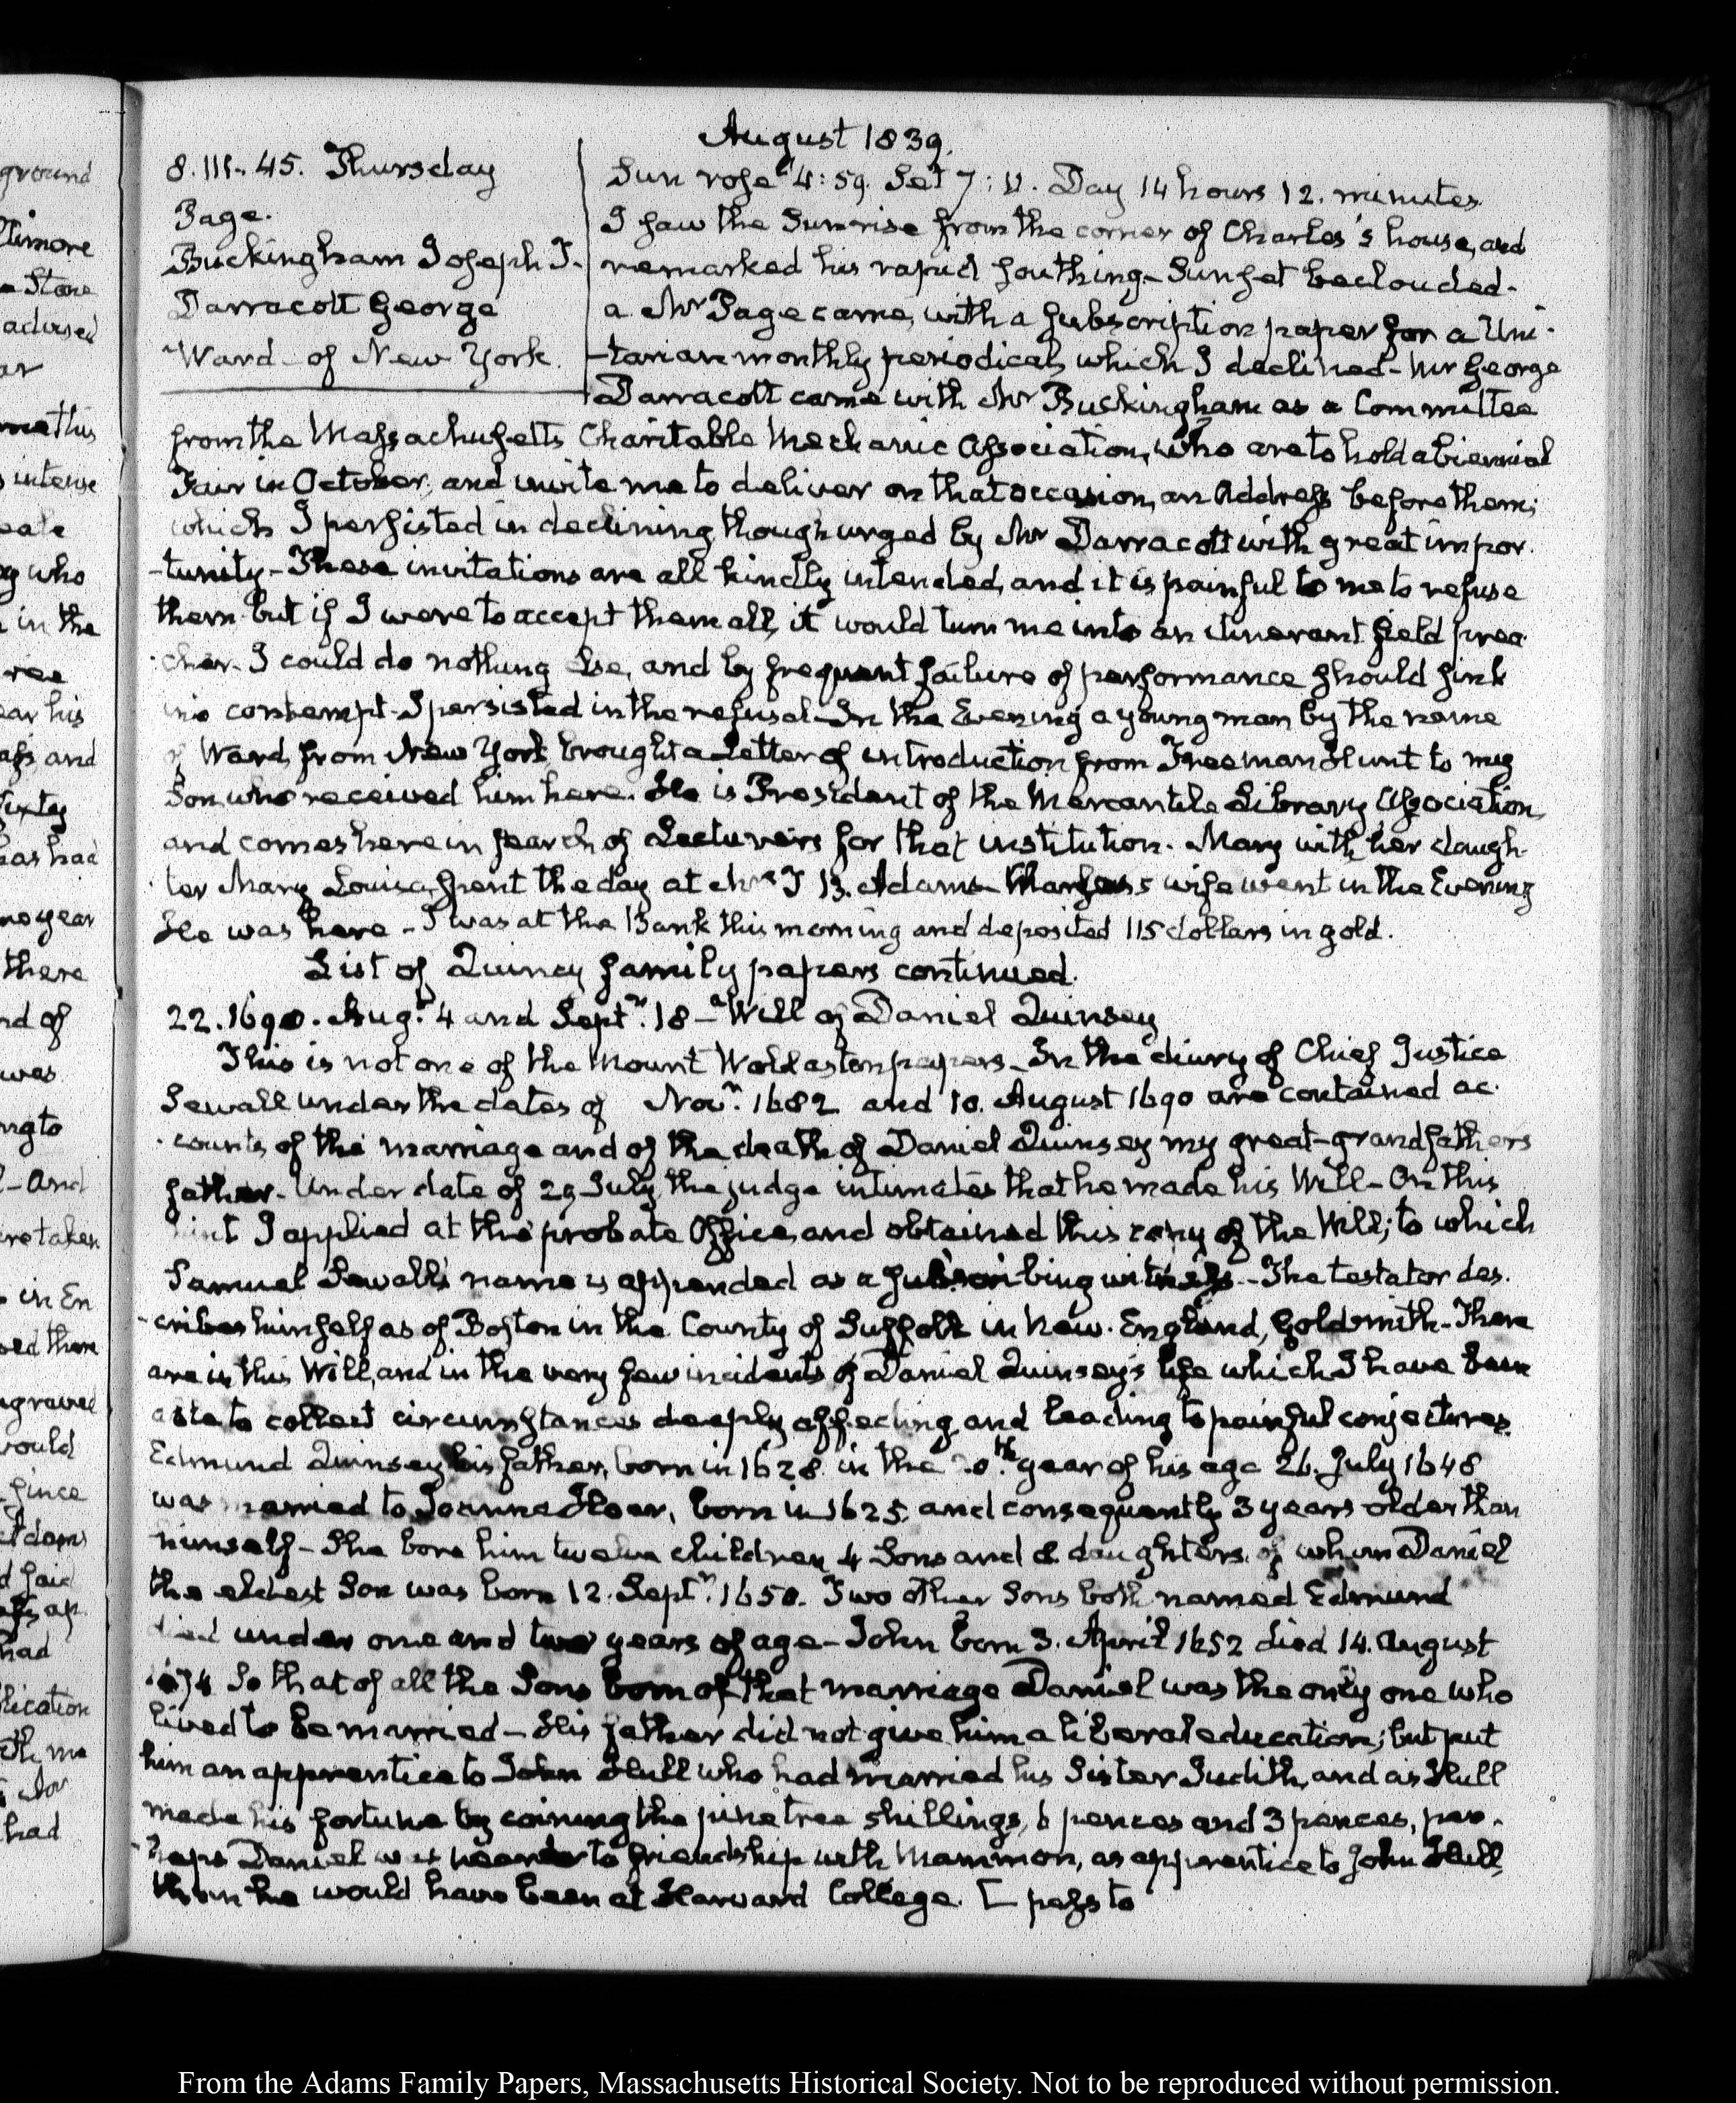 August 1839.
8. III. 45. Thursday
Page.
Buckingham Joseph T.
Darracott George
Ward - of New York.
Sun rose 4:59. Set 7:11. Day 14 hours 12. minutes
I saw the Sun rise from the corner of Charles's house, and
remarked his rapid southing - Sunset beclouded -
a Mr Page came, with a subscription paper for a Uni-
-tarian monthly periodical, which I declined - Mr George
Darracott came with Mr Buckingham as a Committee
from the Massachusetts Charitable Mechanic Association, who are to hold a biennial
Fair in October, and invite me to deliver on that occasion, an Address before them;
which I persisted in declining, though urged by Mr Darracott with great impor-
-tunity - These invitations are all kindly intended, and it is painful to me to refuse
them but if I were to accept them all, it would turn me into an itinerant field prea-
-cher. I could do nothing else, and by frequent failure of performance should sink
into contempt - I persisted in the refusal - In the Evening a young man by the name
of Ward, from New York, brought a Letter of introduction from Freeman Hunt to my
Son, who received him here. He is President of the Mercantile Library Association,
and comes here in search of Lecturers for that institution. Mary with her daugh-
-ter Mary Louisa, spent the day at Mrs T B. Adams - Charles's wife went in the Evening
He was here - I was at the Bank this morning and deposited 115 dollars in gold.
List of Quincy family papers continued.
22. 1690. Aug.t 4 and Sept.r 18 - Will of Daniel Quinsey
This is not one of the Mount Wollaston papers - In the diary of Chief Justice
Sewall under the dates of Nov.r 1682 and 10. August 1690 are contained ac-
-counts of the marriage and of the death of Daniel Quinsey my great-grandfathers
father - Under date of 29 July, the judge intimates that he made his Will - On this
hint I applied at the probate Office, and obtained this copy of the Will; to which
Samuel Sewall's name is appended as a subscribing witness. - The testator des-
-cribes himself as of Boston in the County of Suffolk in New-England, Goldsmith - There
are in this Will, and in the very few incidents of Daniel Quinsey's life which I have been
able to collect circumstances deeply affecting, and leading to painful conjectures.
Edmund Quinsey his father, born in 1628. in the 20.th year of his age 26. July 1648
was married to Joanna Hoar, born in 1625. and consequently 3 years older than
himself - She bore him twelve children, 4 Sons and 8 daughters, of whom Daniel
the eldest Son was born 12. Sept.r 1650. Two other Sons both named Edmund
died under one and two years of age - John born 3. April 1652 died 14. August
1674 So that of all the Sons born of that marriage Daniel was the only one who
lived to be married - His father did not give him a liberal education; but put
him an apprentice to John Hull who had married his Sister Judith, and as Hull
made his fortune by coining the pine tree shillings, 6 pences and 3 pences, per-
-haps Daniel was nearer to friendship with Mammon, as apprentice to John Hull,
than he would have been at Harvard College. [ pass to
ground
Stone
advised
me this
intense
who
in the
ear his
and
has had
no year
there
nd of
was
ng to
And
are taken
in En
ed them
ngraved
would
since
Adams
d said
had
lication
had
From the Adams Family Papers, Massachusetts Historical Society. Not to be reproduced without permission.